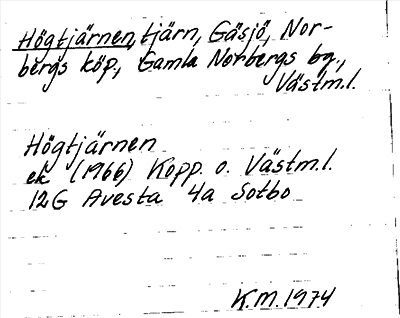 Högtjärnen, tjärn, Gäsjö, Nor-
bergs köp, Gamla Norbergs bg.,
Västm.l.
Högtjärnen
ek (1966) Kopp. o. Västm.l.
12G Avesta 4a Sotbo
K.M. 1974